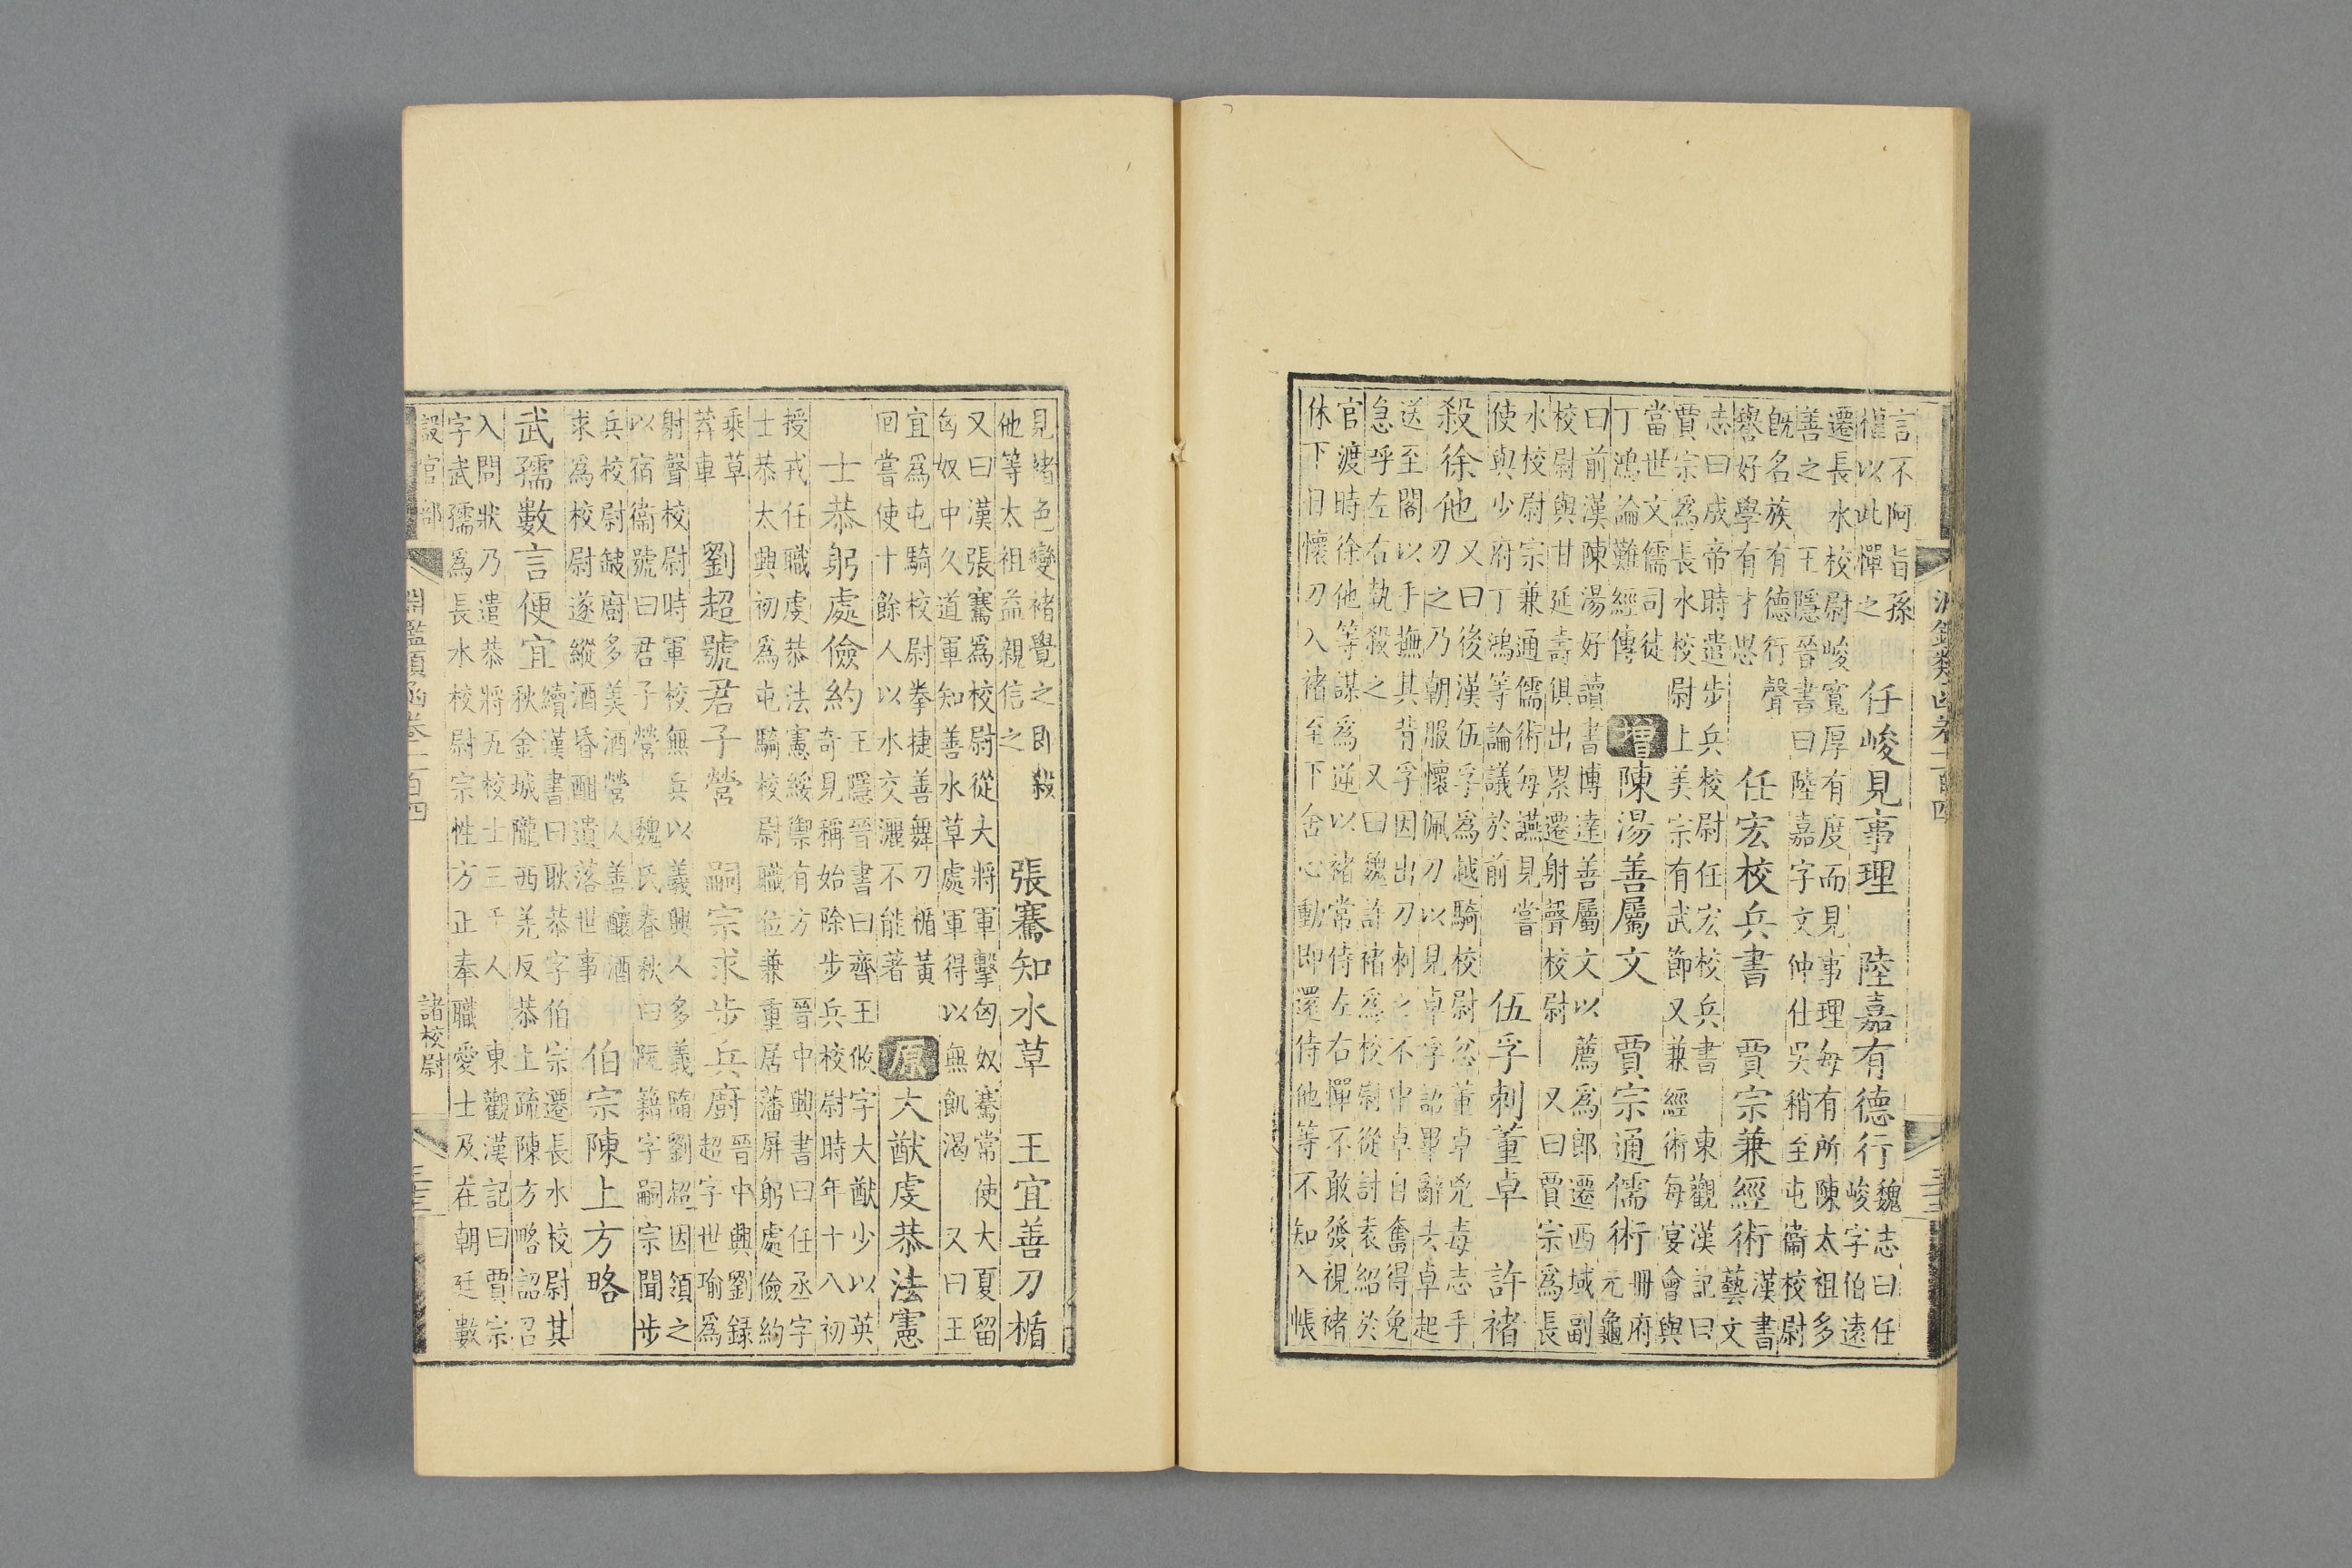 言不阿旨孫
權以此憚之
任峻見事理　陸嘉有德行
魏志曰任
峻字伯遠
遷長水校尉峻寬厚有度而見事理每有所陳太祖多
善之　王隱晉書曰陸嘉字文仲仕吳稍至屯衛校尉
既名族有德行聲
譽好學有才思
任宏校兵書　賈宗兼經術
漢書
藝文
志曰成帝時遣步兵校尉任宏校兵書　東觀漢記曰
賈宗爲長水校尉上美宗有武節又兼經術每宴會與
當世文儒司徒
丁鴻論難經傳
增陳湯善屬文　賈宗通儒術
冊府
元龜
曰前漢陳湯好讀書博達善屬文以薦爲郎遷西域副
校尉與甘延壽俱出累遷射聲校尉　又曰賈宗爲長
水校尉宗兼通儒術每讌見嘗
使與少府丁鴻等論議於前
伍孚刺董卓　許褚
殺徐他
又曰後漢伍孚爲越騎校尉忿董卓兇毒志手
刃之乃朝服懷佩刀以見卓孚詔畢辭去卓起
送至閣以手撫其背孚因出刀刺之不中卓自奮得免
急乎左右執殺之　又曰魏許褚爲校尉從討袁紹於
官渡時徐他等謀爲逆以褚常侍左右憚不敢發視褚
休下日懷刀入褚至下舍心動即還侍他等不知入帳
見褚色變褚覺之即殺
他等太祖益親信之
張騫知水草　王宜善刀楯
又曰漢張騫爲校尉從大將軍擊匈奴騫常使大夏留
匈奴中久道軍知善水草處軍得以無飢渴　又曰王
宜爲屯騎校尉拳捷善舞刀楯黃
回嘗使十餘人以水交灑不能著
原大猷虔恭法憲
士恭躬處儉約
王隱晉書曰齊王攸字大猷少以英
奇見稱始除步兵校尉時年十八初
授戎任職虔恭法憲綏禦有方　晉中興書曰任丞字
士恭太興初爲屯騎校尉職位兼重居藩屏躬處儉約
乘草
葬車
劉超號君子營　嗣宗求步兵廚
晉中興劉錄
超字世瑜爲
射聲校尉時軍校無兵以義興人多義隨劉超因領之
以宿衞號曰君子營　魏氏春秋曰阮籍字嗣宗聞步
兵校尉缺廚多美酒營人善釀酒
求爲校尉遂縱酒昏酣遺落世事
伯宗陳上方略
武孺數言便宜
續漢書曰耿恭字伯宗遷長水校尉其
秋金城隴西羌反恭上疏陳方略詔召
入問狀乃遣恭將五校士三千人　東觀漢記曰賈宗
字武孺爲長水校尉宗性方正奉職愛士及在朝廷數
設官部　諸校尉
淵鑑類函卷